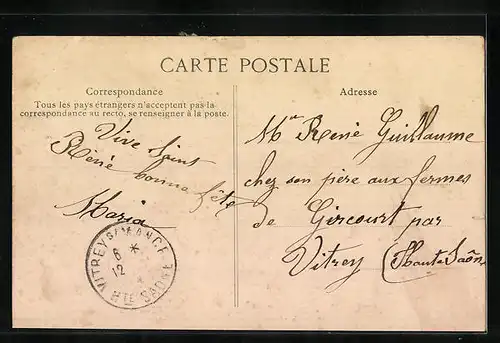 CARTE POSTALE
Correspondance
Tous les pays étrangers n'acceptent pas la
correspondance au recto, se renseigner à la poste.
Vive Saint
René bonne fête
Maria
VITREY S/ MANCE
6 *
12
HTE SAONE
Adresse
Mr René Guillaume
chez son père aux fermes
de Gircourt par
Vitrey (Haute Saône